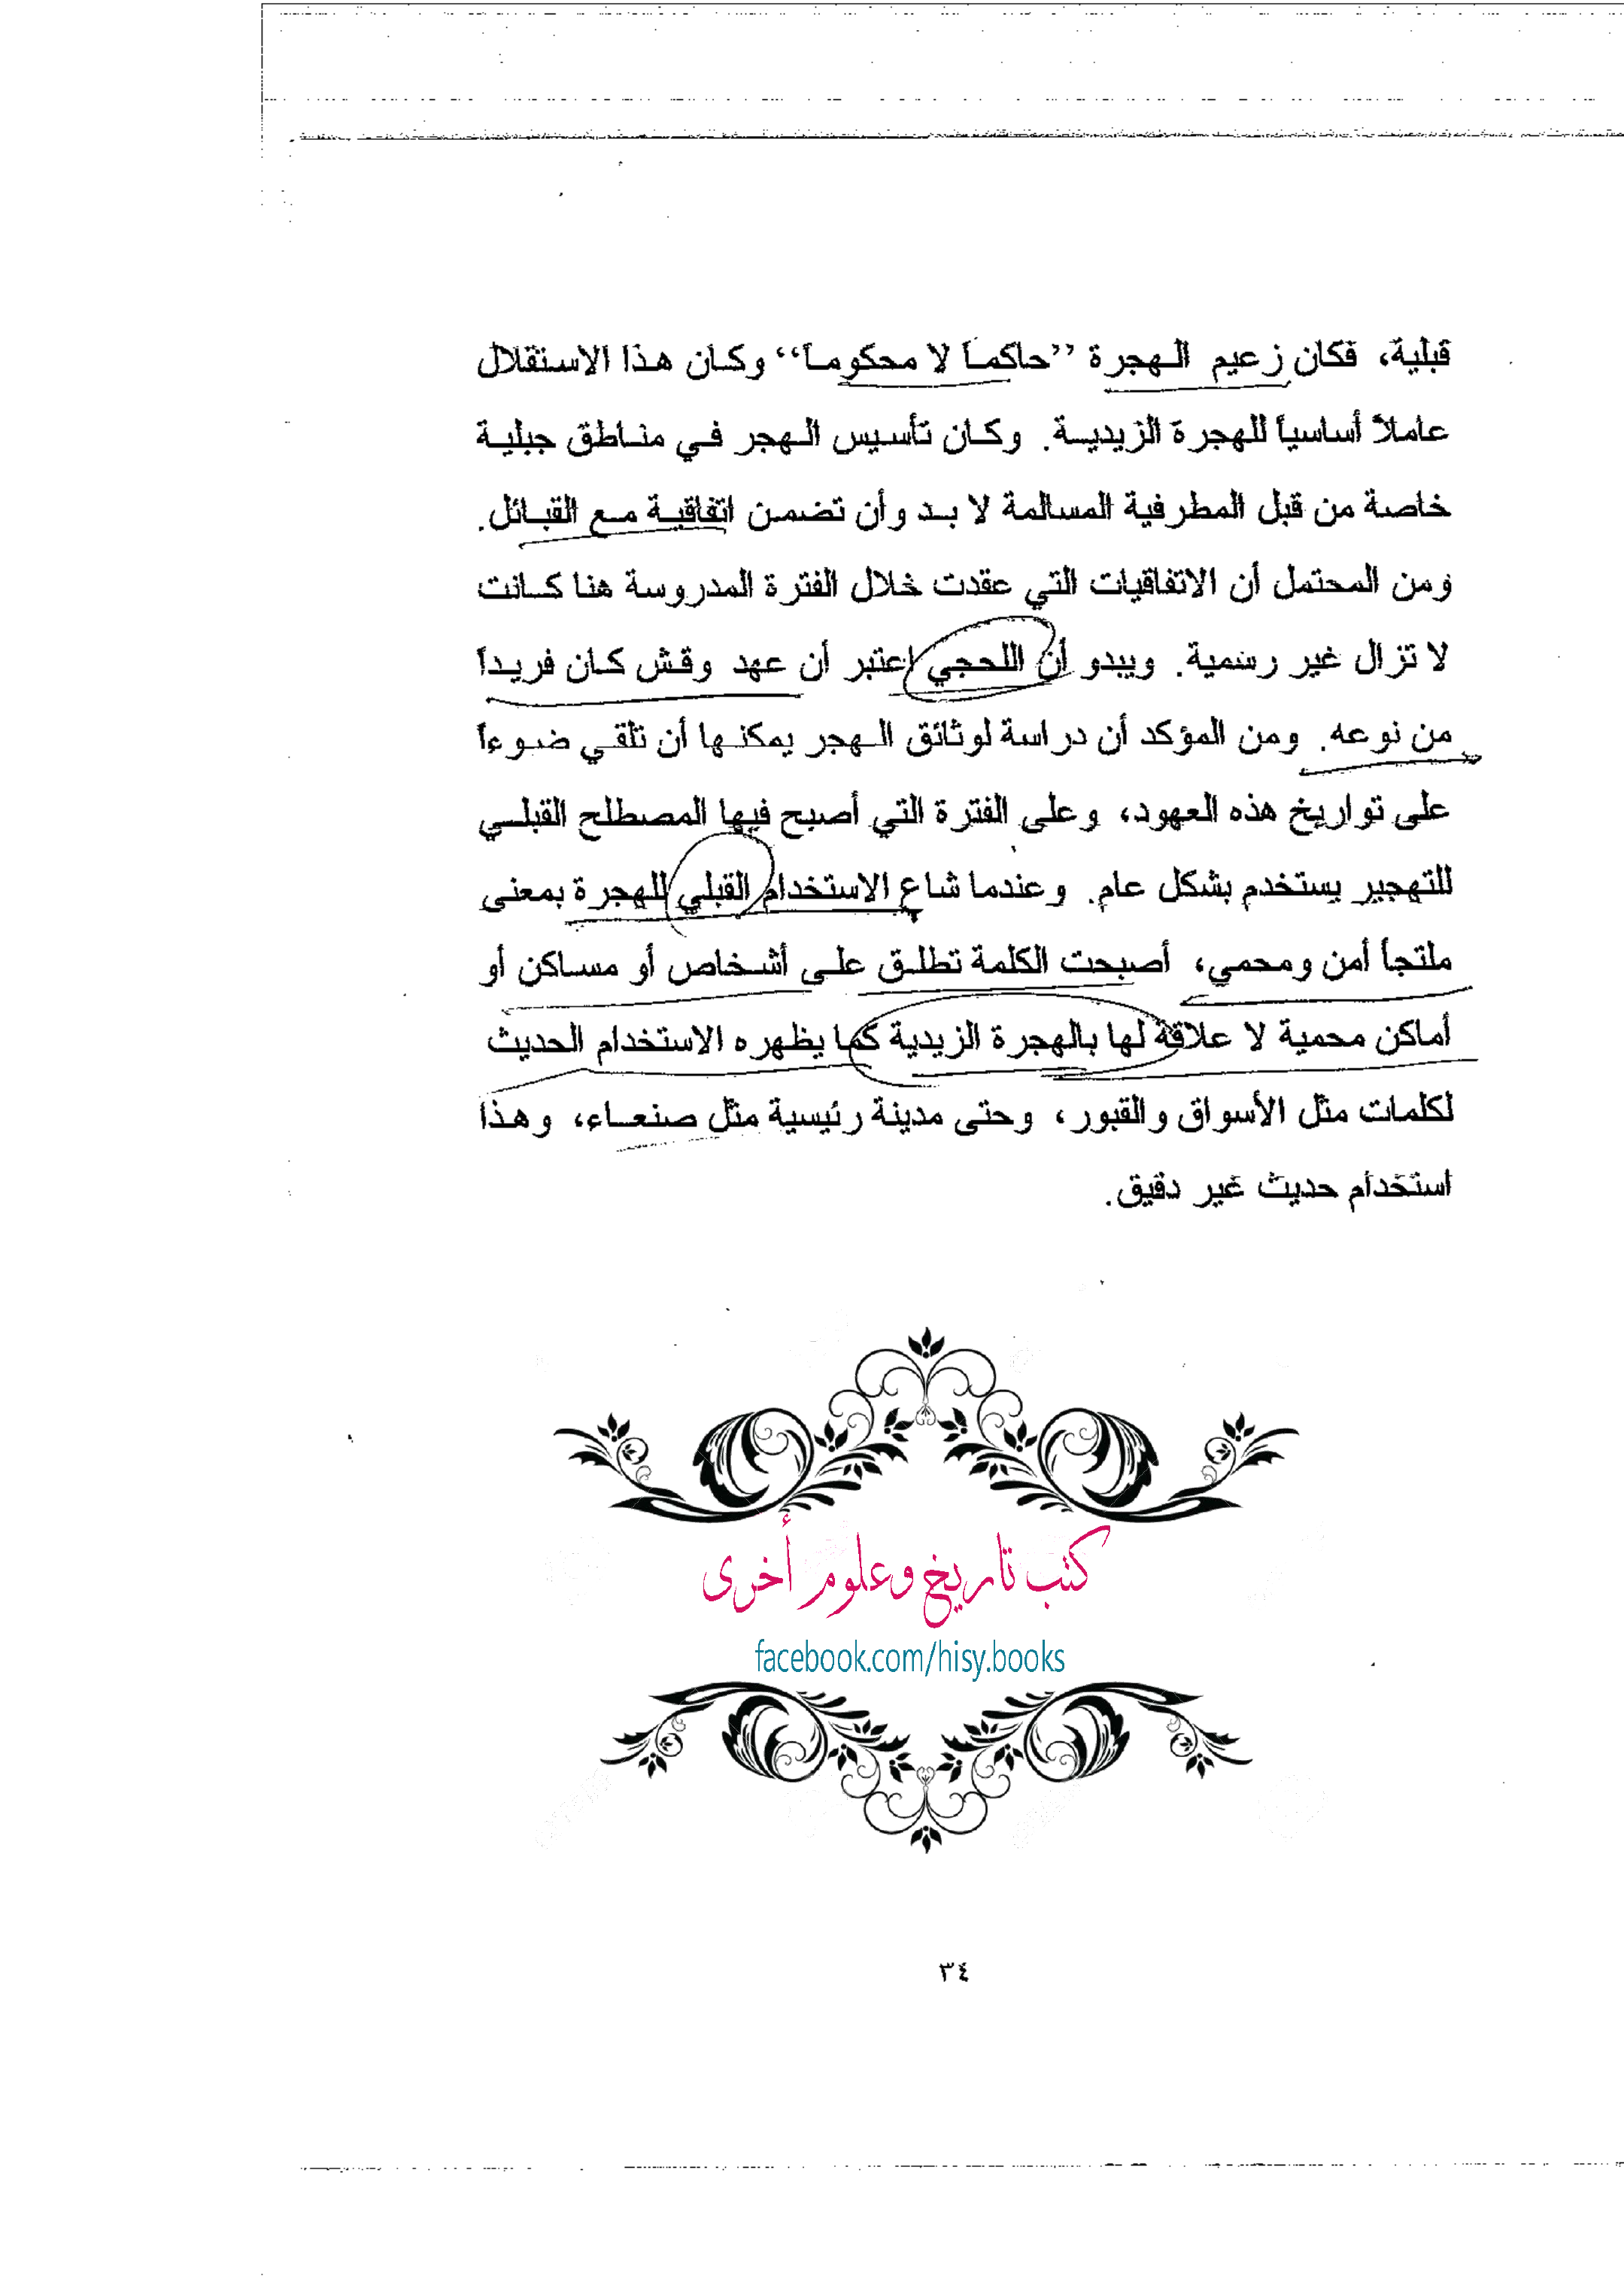 قبلية، فكان زعيم الهجرة ”حاكماً لا محكوماً“ وكان هذا الاستقلال
عاملاً أساسياً للهجرة الزيدية. وكان تأسيس الهجر في مناطق جبلية
خاصة من قبل المطرفية المسالمة لا بد وأن تضمن اتفاقية مع القبائل.
ومن المحتمل أن الاتفاقيات التي عقدت خلال الفترة المدروسة هنا كانت
لا تزال غير رسمية. ويبدو أن اللحجي اعتبر أن عهد وقش كان فريداً
من نوعه. ومن المؤكد أن دراسة لوثائق الهجر يمكنها أن تلقي ضوءاً
على تواريخ هذه العهود، وعلى الفترة التي أصبح فيها المصطلح القبلي
للتهجير يستخدم بشكل عام. وعندما شاع الاستخدام القبلي للهجرة بمعنى
ملتجأ أمن ومحمي، أصبحت الكلمة تطلق على أشخاص أو مساكن أو
أماكن محمية لا علاقة لها بالهجرة الزيدية كما يظهره الاستخدام الحديث
لكلمات مثل الأسواق والقبور، وحتى مدينة رئيسية مثل صنعاء، وهذا
استخدام حديث غير دقيق.
كتب تاريخ وعلوم أخرى
facebook.com/hisy.books
٣٤